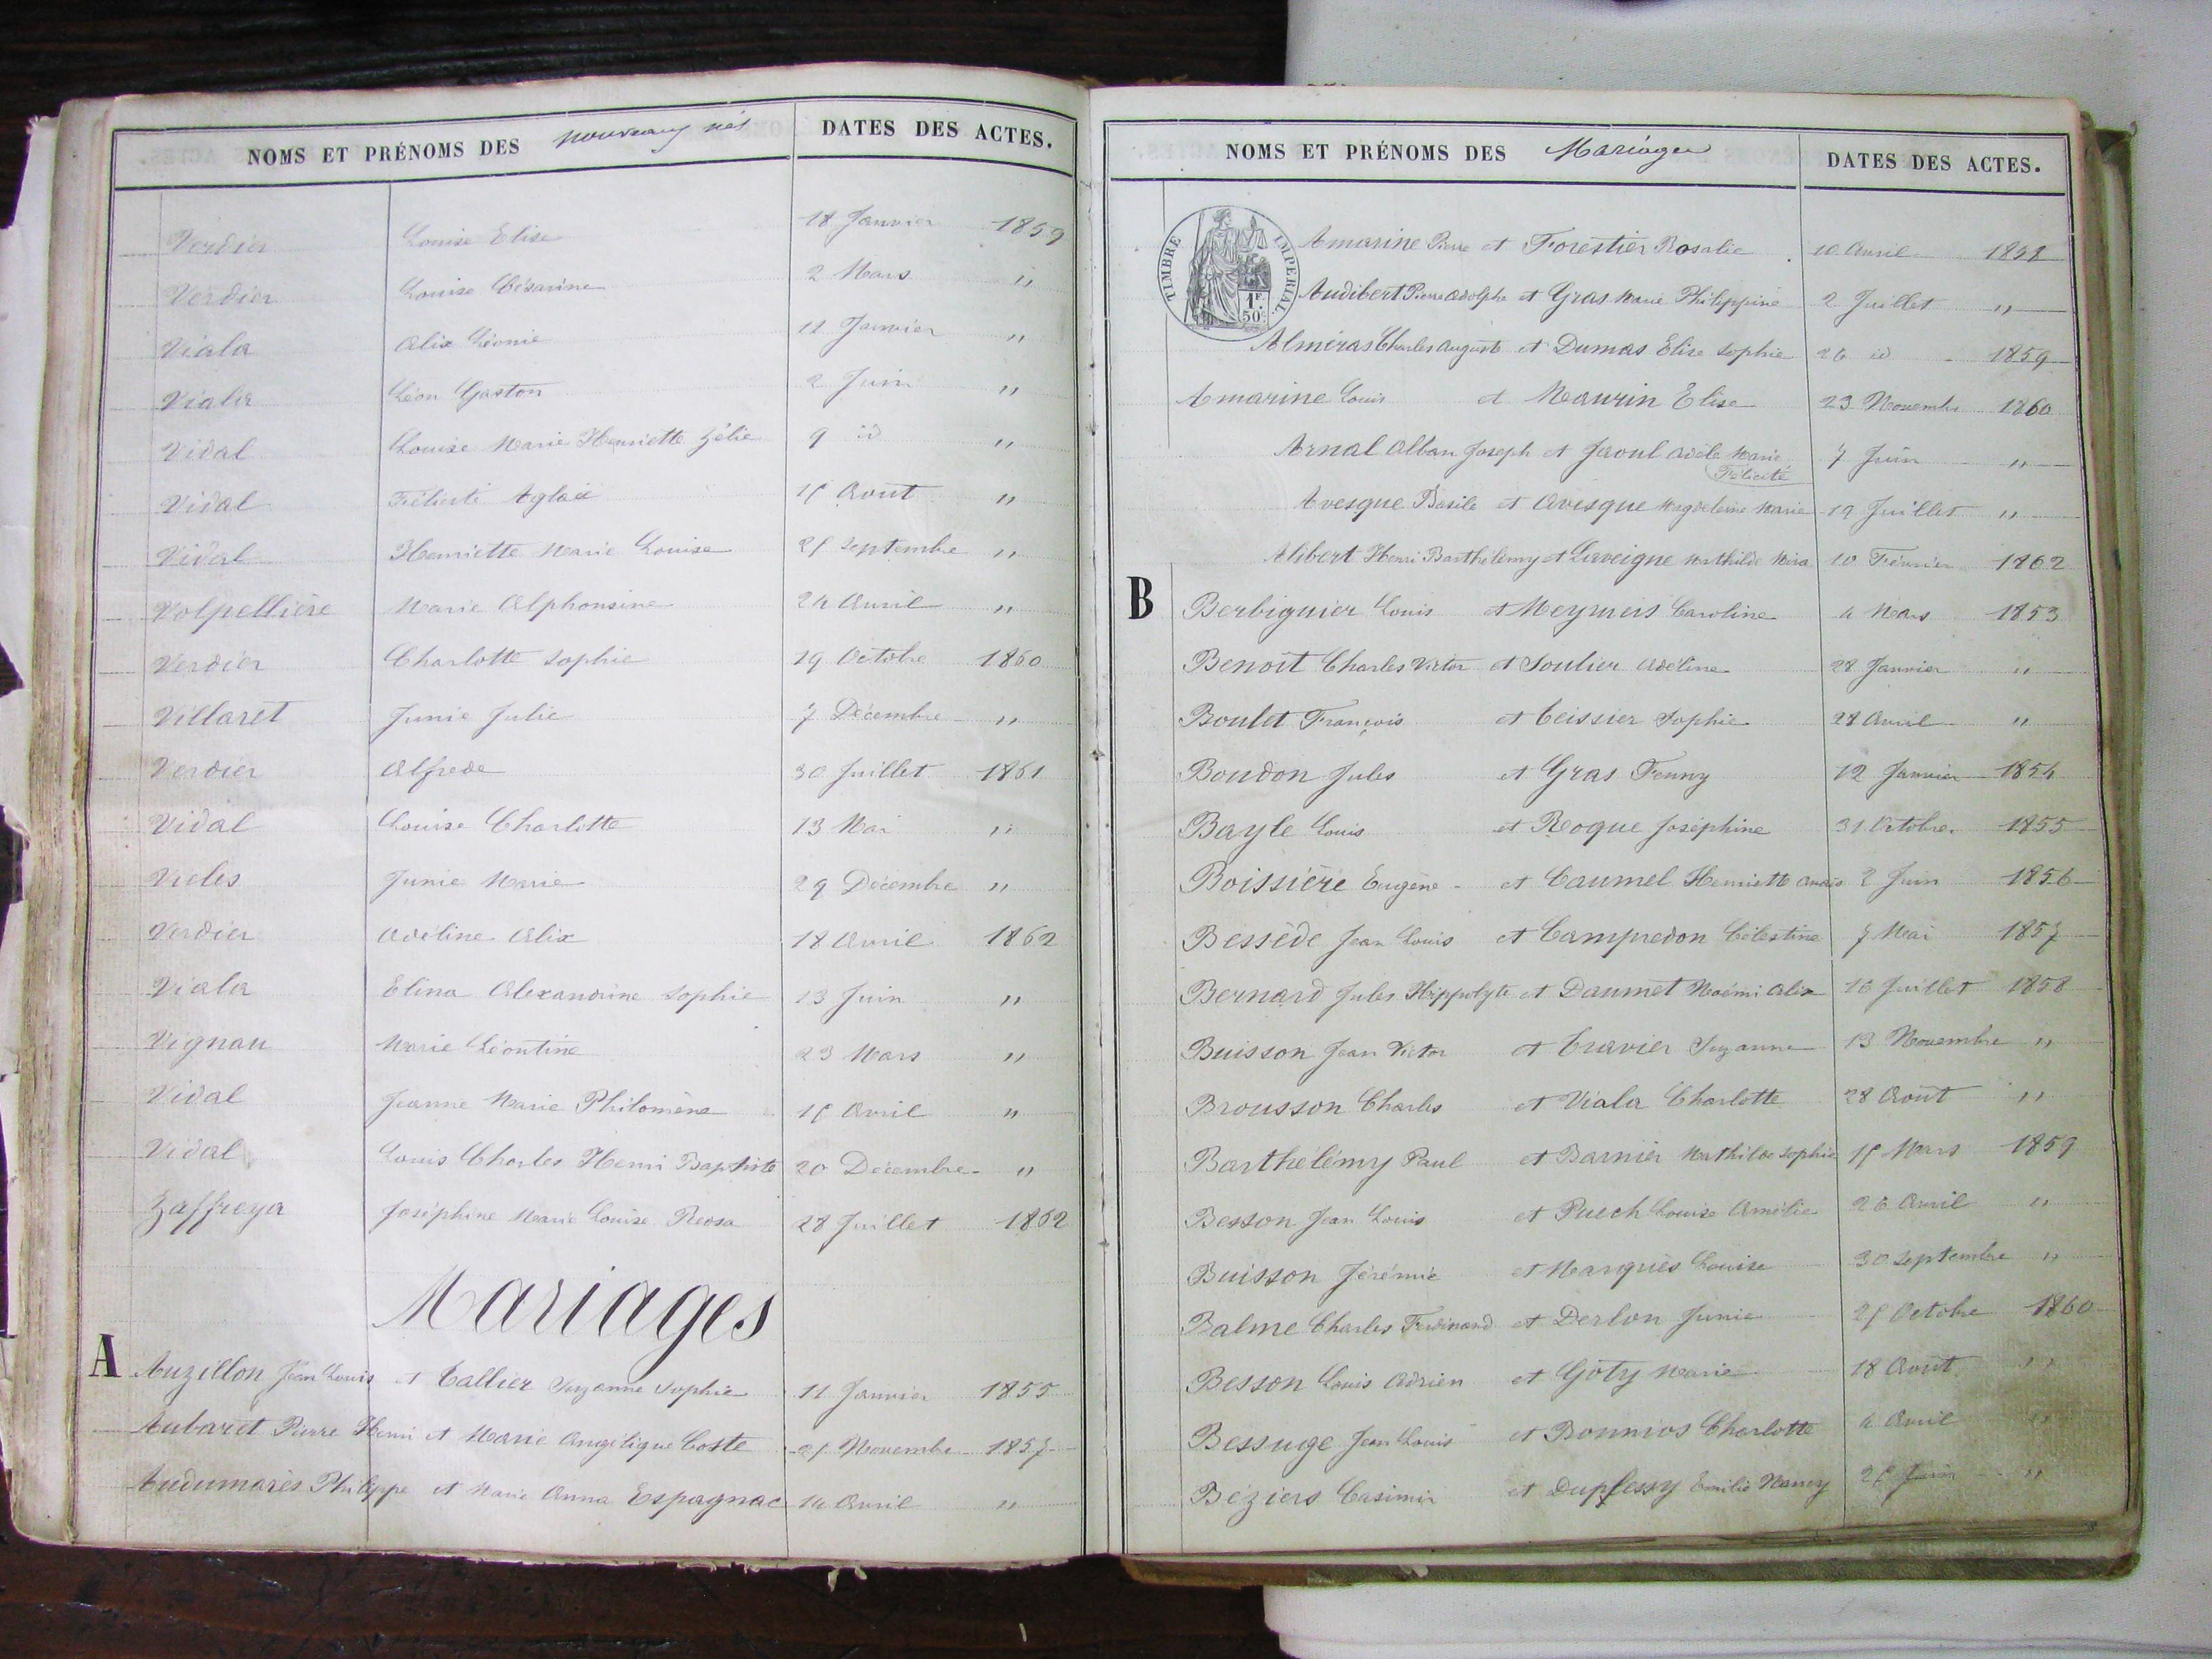 NOMS ET PRÉNOMS DES nouveaux nés DATES DES ACTES.
Verdier Louise Elise 18 Janvier 1859
Verdier Louise Césarine 2 Mars "
Viala Alix Léonie 11 Janvier "
Viala Léon Gaston 2 Juin "
Vidal Louise Marie Henriette Zélie 9 id "
Vidal Félicité Aglaé 15 Aout "
Vidal Henriette Marie Louise 25 Septembre "
Volpellière Marie Alphonsine 24 Avril "
Verdier Charlotte Sophie 19 Octobre 1860
Villaret Junie Julie 7 Décembre "
Verdier Alfrede 30 Juillet 1861
Vidal Louise Charlotte 13 Mai "
Vieles Junie Marie 29 Décembre "
Verdier Adéline Alix 18 Avril 1862
Viala Elina Alexandrine Sophie 13 Juin "
Vignau Marie Léontine 23 Mars "
Vidal Jeanne Marie Philomène 15 Avril "
Vidal Louis Charles Henri Baptiste 20 Décembre "
Zaffreya Joséphine Marie Louise Rosa 28 Juillet 1862
Mariages
A Auzillon Jean Louis et Tallier Suzanne Sophie 11 Janvier 1855
Aubaret Pierre Henri et Marie Angélique Coste 25 Novembre 1857
Audumarès Philippe et Marie Anna Espagnac 14 Avril "
NOMS ET PRÉNOMS DES Mariages DATES DES ACTES.
TIMBRE IMPERIAL
1F. 50c.
Amarine Pierre et Forestier Rosalie 10 Avril 1858
Audibert Pierre Adolphe et Gras Marie Philippine 2 Juillet "
Alméras Charles Auguste et Dumas Elise Sophie 26 id 1859
Amarine Louis et Maurin Elise 23 Novembre 1860
Arnal Alban Joseph et Jaoul Adèle Marie 7 Juin "
Félicité
Avesque Basile et Avesque Magdeleine Marie 19 Juillet "
Alibert Henri Barthélemy et Laveigne Mathilde 10 Février 1862
B Berbiguier Louis et Meyrueis Caroline 4 Mars 1853
Benoit Charles Victor et Soulier Adéline 28 Janvier "
Boulet François et Teissier Sophie 28 Avril "
Boudon Jules et Gras Fanny 12 Janvier 1854
Bayle Louis et Roque Joséphine 31 Octobre 1855
Boissière Eugène et Caumel Henriette Anaïs 2 Juin 1856
Bessède Jean Louis et Campredon Célestine 7 Mai 1857
Bernard Jules Hippolyte et Daumet Noémi Alix 16 Juillet 1858
Buisson Jean Victor et Cravier Suzanne 13 Novembre "
Brousson Charles et Viala Charlotte 28 Aout "
Barthélémy Paul et Barnier Mathilde Sophie 15 Mars 1859
Besson Jean Louis et Puech Louise Amélie 26 Avril "
Buisson Jérémie et Marquès Louise 30 Septembre "
Balme Charles Ferdinand et Derlon Junie 25 Octobre 1860
Besson Louis Adrien et Goty Marie 18 Aout "
Bessuge Jean Louis et Bonnios Charlotte 4 Avril "
Béziers Casimir et Duplessy Emilie Nancy 25 Juin "